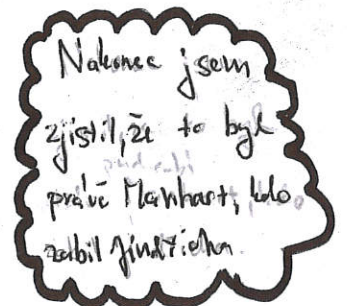 Nakonec jsem
zjistil, že to byl
právě Manhart, kdo
zabil Jindřicha.